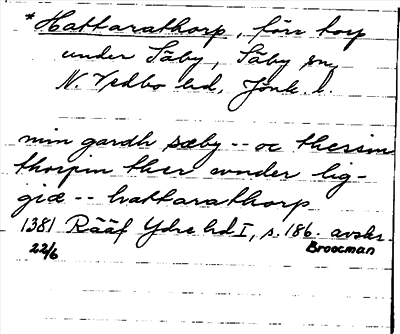 *Hattarathorp, förr torp
under Säby, Säby sn,
N. Vedbo hd, Jönk. l.
min gardh sæby -- oc thessin
thorpin ther wnder lig-
giæ -- hattarathorp
1381 Rääf Ydre hd I, s. 186. avskr.
22/6 Broocman